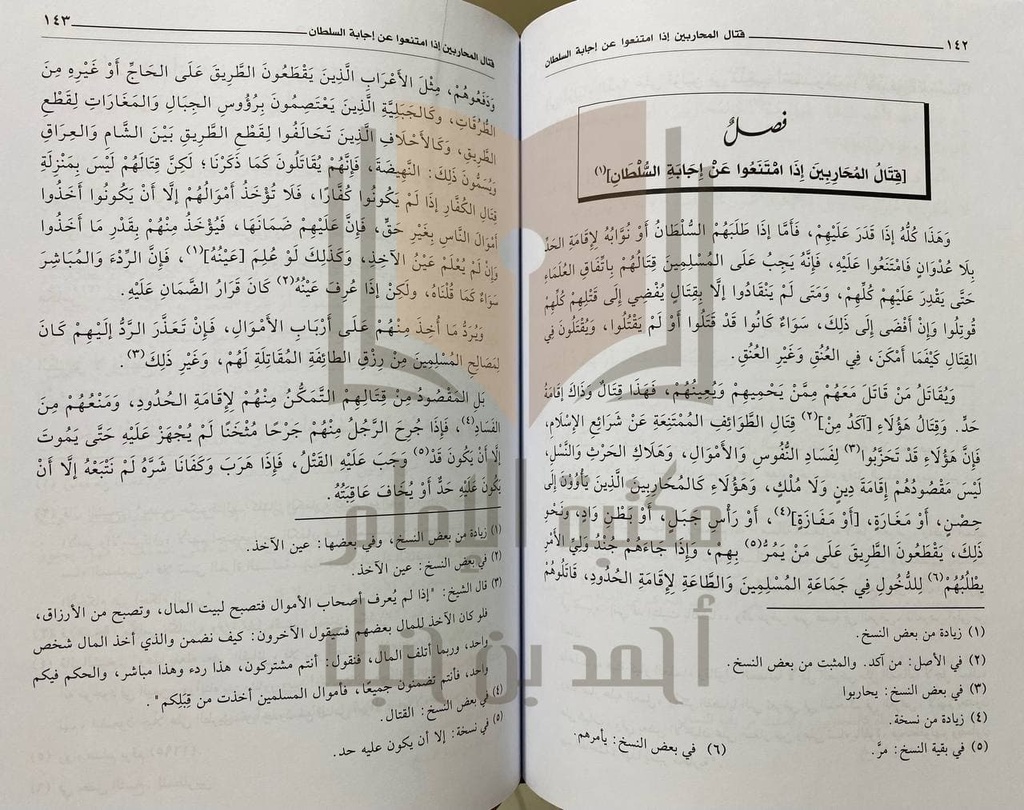 ١٤٢ قتال المحاربين إذا امتنعوا عن إجابة السلطان
فصلٌ
[قِتَالُ المُحَارِبِينَ إِذَا امْتَنَعُوا عَنْ إِجَابَةِ السُّلْطَانِ](١)
وَهَذَا كُلُّهُ إِذَا قَدَرَ عَلَيْهِمْ، فَأَمَّا إِذَا طَلَبَهُمْ السُّلْطَانُ أَوْ نُوَّابُهُ لِإِقَامَةِ الحَدِّ
بِلَا عُدْوَانٍ فَامْتَنَعُوا عَلَيْهِ، فَإِنَّهُ يَجِبُ عَلَى المُسْلِمِينَ قِتَالُهُمْ بِاتِّفَاقِ العُلَمَاءِ
حَتَّى يَقْدِرَ عَلَيْهِمْ كُلِّهِمْ، وَمَتَى لَمْ يَنْقَادُوا إِلَّا بِقِتَالٍ يُفْضِي إِلَى قَتْلِهِمْ كُلِّهِمْ
قُوتِلُوا وَإِنْ أَفْضَى إِلَى ذَلِكَ، سَوَاءٌ كَانُوا قَدْ قَتَلُوا أَوْ لَمْ يَقْتُلُوا، وَيُقْتَلُونَ فِي
القِتَالِ كَيْفَمَا أَمْكَنَ، فِي العُنُقِ وَغَيْرِ العُنُقِ.
وَيُقَاتَلُ مَنْ قَاتَلَ مَعَهُمْ مِمَّنْ يَحْمِيهِمْ وَيُعِينُهُمْ، فَهَذَا قِتَالٌ وَذَاكَ إِقَامَةُ
حَدٍّ. وَقِتَالُ هَؤُلَاءِ [آكَدُ مِنْ](٢) قِتَالِ الطَّوَائِفِ المُمْتَنِعَةِ عَنْ شَرَائِعِ الإِسْلَامِ،
فَإِنَّ هَؤُلَاءِ قَدْ تَحَزَّبُوا(٣) لِفَسَادِ النُّفُوسِ وَالأَمْوَالِ، وَهَلَاكِ الحَرْثِ وَالنَّسْلِ،
لَيْسَ مَقْصُودُهُمْ إِقَامَةَ دِينٍ وَلَا مُلْكٍ، وَهَؤُلَاءِ كَالمُحَارِبِينَ الَّذِينَ يَأْوُونَ إِلَى
حِصْنٍ، أَوْ مَغَارَةٍ، [أَوْ مَفَازَةٍ](٤)، أَوْ رَأْسِ جَبَلٍ، أَوْ بَطْنِ وَادٍ، وَنَحْوِ
ذَلِكَ، يَقْطَعُونَ الطَّرِيقَ عَلَى مَنْ يَمُرُّ(٥) بِهِمْ، وَإِذَا جَاءَهُمْ جُنْدُ وَلِيِّ الأَمْرِ
يَطْلُبُهُمْ(٦) لِلدُّخُولِ فِي جَمَاعَةِ المُسْلِمِينَ وَالطَّاعَةِ لِإِقَامَةِ الحُدُودِ، قَاتَلُوهُمْ
(١) زيادة من بعض النسخ.
(٢) في الأصل: من آكد. والمثبت من بعض النسخ.
(٣) في بعض النسخ: يحاربوا
(٤) زيادة من نسخة.
(٥) في بقية النسخ: مرَّ. (٦) في بعض النسخ: يأمرهم.
قتال المحاربين إذا امتنعوا عن إجابة السلطان ١٤٣
وَدَفَعُوهُمْ، مِثْلَ الأَعْرَابِ الَّذِينَ يَقْطَعُونَ الطَّرِيقَ عَلَى الحَاجِّ أَوْ غَيْرِهِ مِنَ
الطُّرُقَاتِ، وَكَالجَبَلِيَّةِ الَّذِينَ يَعْتَصِمُونَ بِرُؤُوسِ الجِبَالِ وَالمَغَارَاتِ لِقَطْعِ
الطَّرِيقِ، وَكَالأَحْلَافِ الَّذِينَ تَحَالَفُوا لِقَطْعِ الطَّرِيقِ بَيْنَ الشَّامِ وَالعِرَاقِ
وَيُسَمُّونَ ذَلِكَ: النَّهِيضَةَ، فَإِنَّهُمْ يُقَاتَلُونَ كَمَا ذَكَرْنَا؛ لَكِنَّ قِتَالَهُمْ لَيْسَ بِمَنْزِلَةِ
قِتَالِ الكُفَّارِ إِذَا لَمْ يَكُونُوا كُفَّارًا، فَلَا تُؤْخَذُ أَمْوَالُهُمْ إِلَّا أَنْ يَكُونُوا أَخَذُوا
أَمْوَالَ النَّاسِ بِغَيْرِ حَقٍّ، فَإِنَّ عَلَيْهِمْ ضَمَانَهَا، فَيُؤْخَذُ مِنْهُمْ بِقَدْرِ مَا أَخَذُوا
وَإِنْ لَمْ يُعْلَمْ عَيْنُ الآخِذِ، وَكَذَلِكَ لَوْ عُلِمَ [عَيْنُهُ](١)، فَإِنَّ الرِّدْءَ وَالمُبَاشِرَ
سَوَاءٌ كَمَا قُلْنَاهُ، وَلَكِنْ إِذَا عُرِفَ عَيْنُهُ(٢) كَانَ قَرَارُ الضَّمَانِ عَلَيْهِ.
وَيُرَدُّ مَا أُخِذَ مِنْهُمْ عَلَى أَرْبَابِ الأَمْوَالِ، فَإِنْ تَعَذَّرَ الرَّدُّ إِلَيْهِمْ كَانَ
لِمَصَالِحِ المُسْلِمِينَ مِنْ رِزْقِ الطَّائِفَةِ المُقَاتِلَةِ لَهُمْ، وَغَيْرِ ذَلِكَ(٣).
بَلِ المَقْصُودُ مِنْ قِتَالِهِمْ التَّمَكُّنُ مِنْهُمْ لِإِقَامَةِ الحُدُودِ، وَمَنْعُهُمْ مِنَ
الفَسَادِ(٤)، فَإِذَا جُرِحَ الرَّجُلُ مِنْهُمْ جَرْحًا مُثْخَنًا لَمْ يُجْهَزْ عَلَيْهِ حَتَّى يَمُوتَ
إِلَّا أَنْ يَكُونَ قَدْ(٥) وَجَبَ عَلَيْهِ القَتْلُ، فَإِذَا هَرَبَ وَكَفَانَا شَرَّهُ لَمْ نَتْبَعْهُ إِلَّا أَنْ
يَكُونَ عَلَيْهِ حَدٌّ أَوْ يُخَافَ عَاقِبَتُهُ.
(١) زيادة من بعض النسخ، وفي بعضها: عين الآخذ.
(٢) في بعض النسخ: عين الآخذ.
(٣) قال الشيخ: "إذا لم يُعرف أصحاب الأموال فتصبح لبيت المال، وتصبح من الأرزاق،
فلو كان الآخذ للمال بعضهم فسيقول الآخرون: كيف نضمن والذي أخذ المال شخص
واحد، وربما أتلف المال، فنقول: أنتم مشتركون، هذا ردء وهذا مباشر، والحكم فيكم
واحد، فأنتم تضمنون جميعًا، فأموال المسلمين أخذت من قِبَلِكم".
(٤) في بعض النسخ: القتال.
(٥) في نسخة: إلا أن يكون عليه حد.
مكتبة الإمام
أحمد بن حنبل